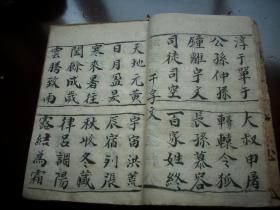 淳于單于 大叔申屠
公孫仲孫 軒轅令狐
鍾離宇文 長孫慕容
司徒司空 百家姓終
千字文
天地元黃 宇宙洪荒
日月盈昃 辰宿列張
寒來暑往 秋收冬藏
閏餘成歲 律呂調陽
雲騰致雨 露結為霜